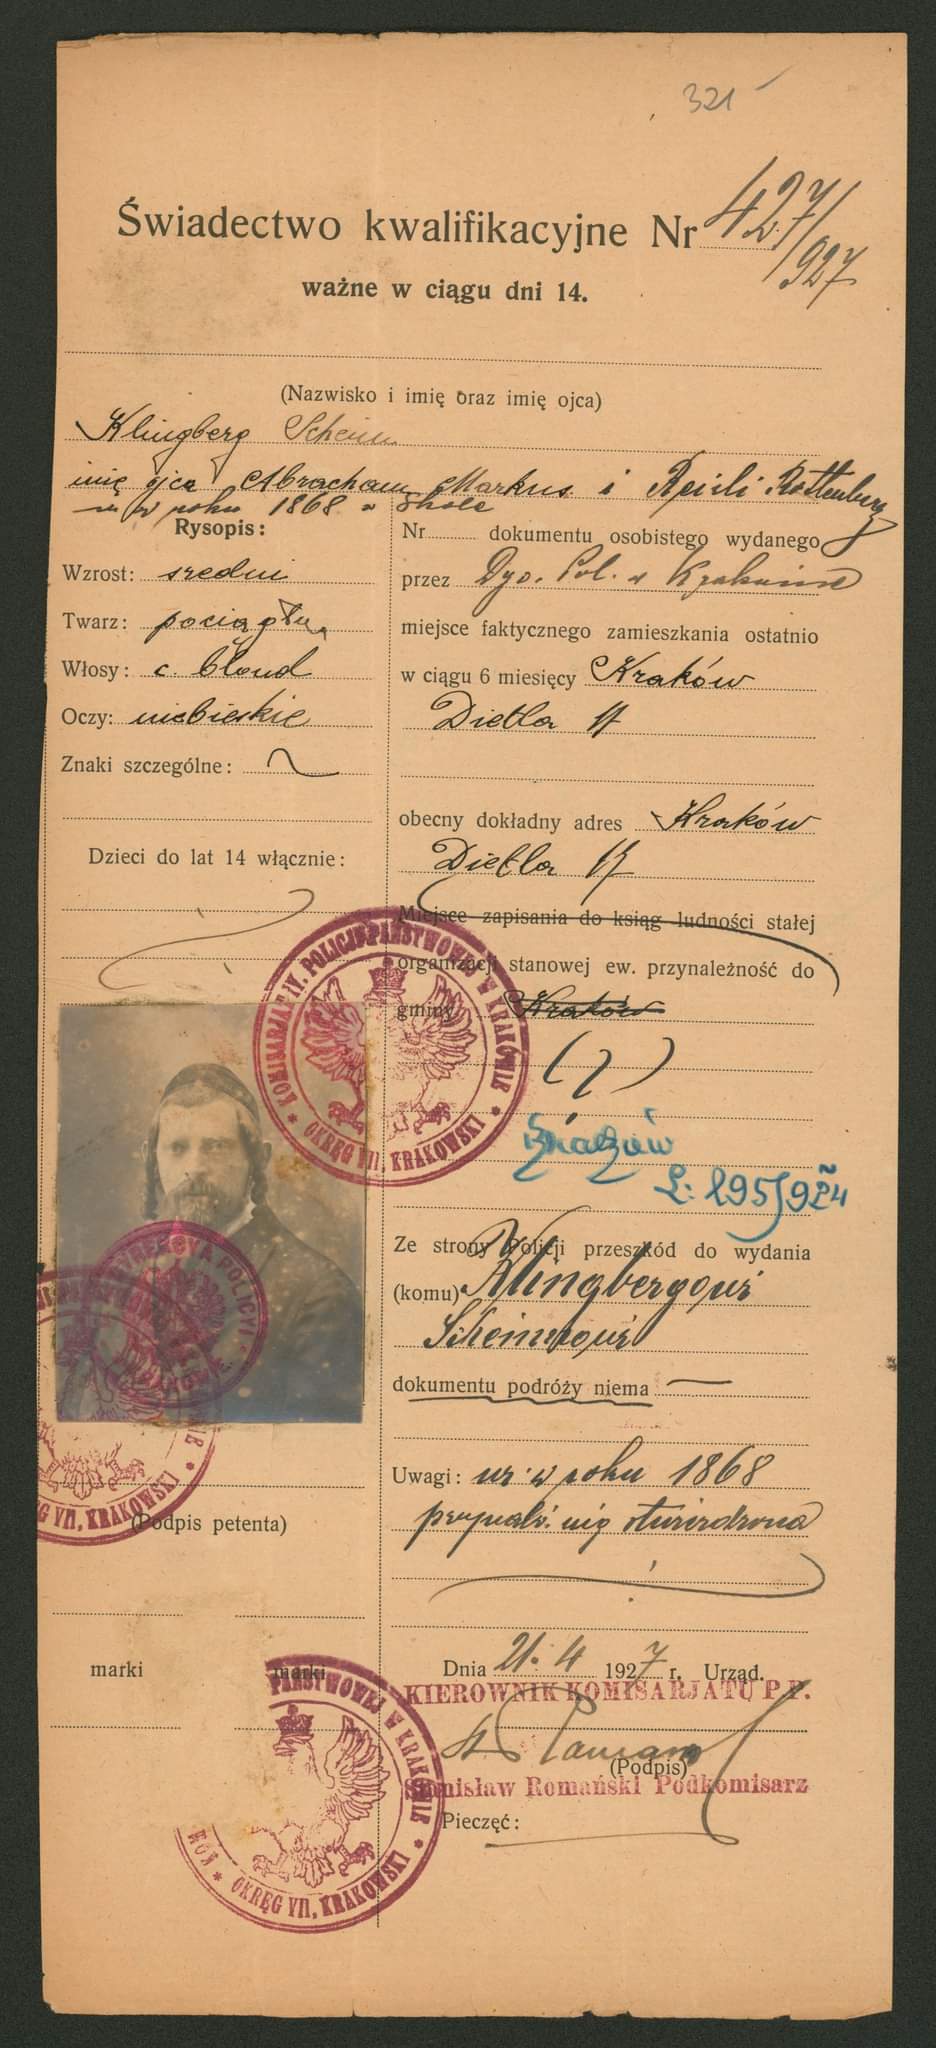 321
Świadectwo kwalifikacyjne Nr 427/927
ważne w ciągu dni 14.
(Nazwisko i imię oraz imię ojca)
Klingberg
imię ojca Abracham Markus i Reisli Rottenberg
w roku 1868 w
Rysopis:
Wzrost: średni
Twarz: pociągła
Włosy: c. blond
Oczy: niebieskie
Znaki szczególne:
Dzieci do lat 14 włącznie:
(Podpis petenta)
marki marki
Nr dokumentu osobistego wydanego
przez Dyr. Pol. w Krakowie
miejsce faktycznego zamieszkania ostatnio
w ciągu 6 miesięcy Kraków
Dietla
obecny dokładny adres Kraków
Dietla
Miejsce zapisania do ksiąg ludności stałej
organizacji stanowej ew. przynależność do
gminy Kraków
Ze strony Policji przeszkód do wydania
(komu) Klingbergowi
dokumentu podróży niema
Uwagi: ur. w roku 1868
Dnia 21. 4 1927 r. Urząd.
KIEROWNIK KOMISARJATU P.P.
(Podpis)
Stanisław Romański Podkomisarz
Pieczęć:
KOMISARJAT IV. POLICJI PAŃSTWOWEJ W KRAKOWIE
OKRĘG VII, KRAKOWSKI
POLICYI
KRAKOWIE
OKRĘG VII, KRAKOWSKI
PAŃSTWOWEJ W KRAKOWIE
KOM
OKRĘG VII, KRAKOWSKI